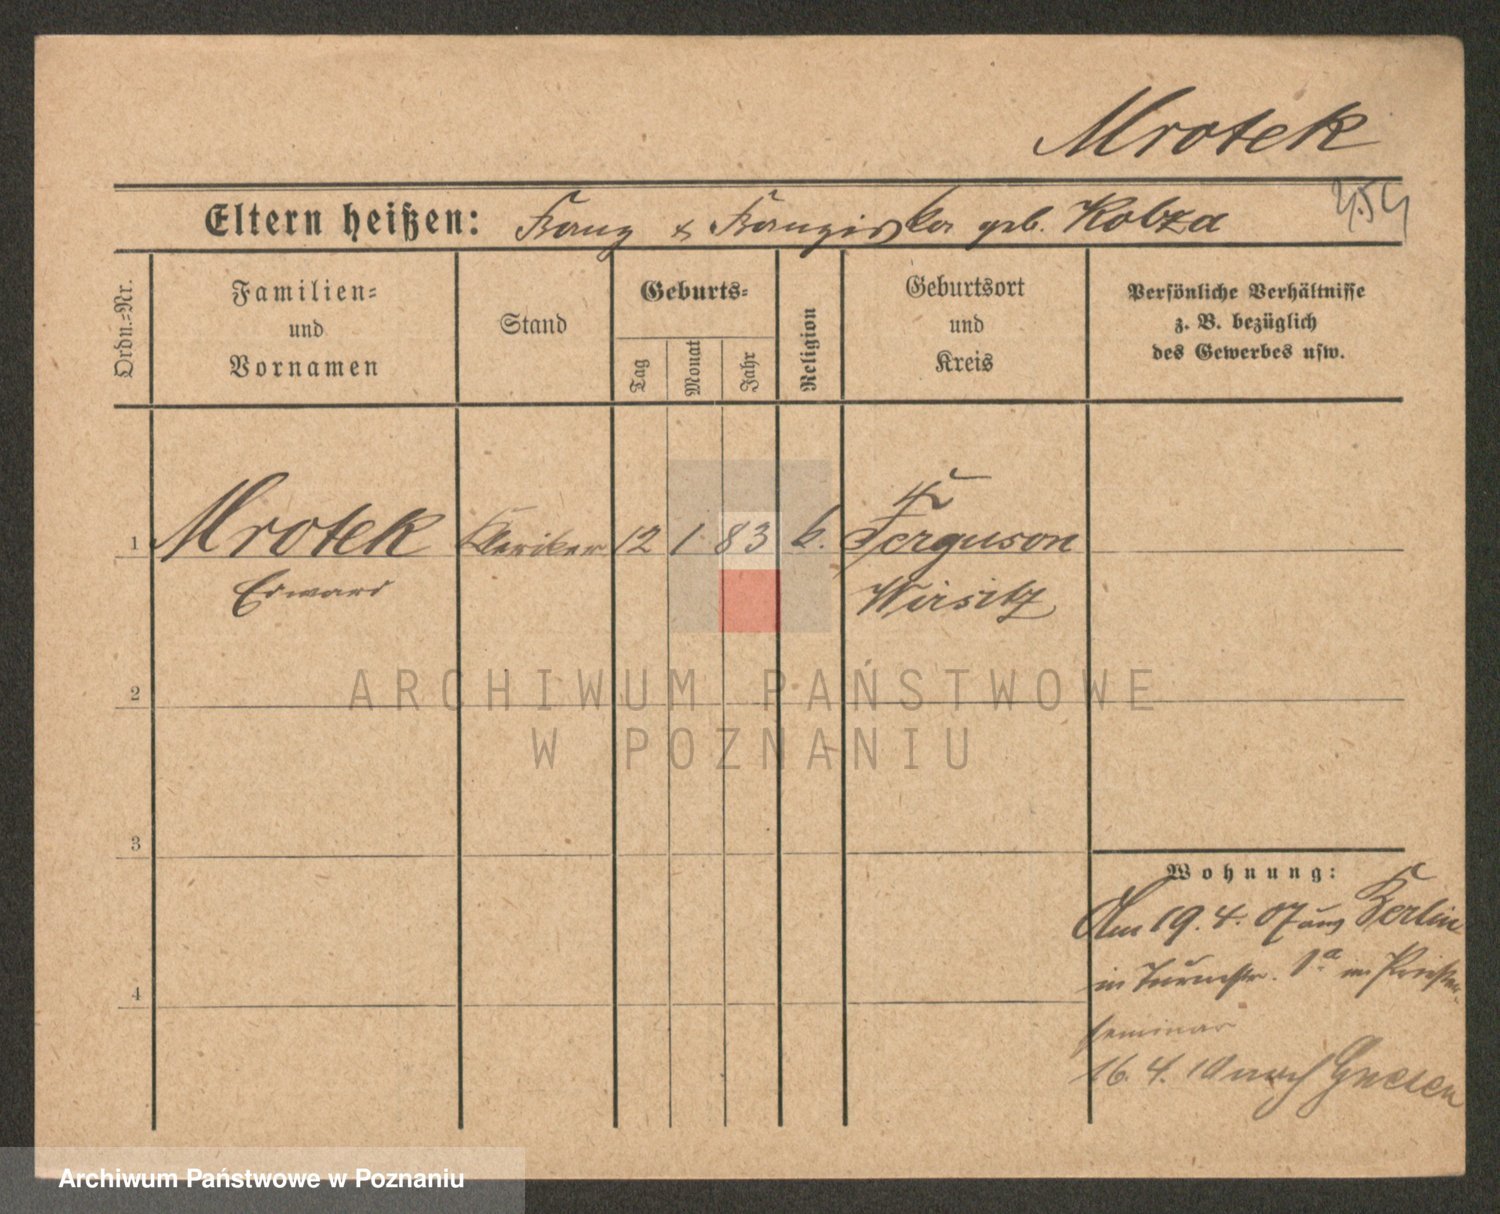 Mrotek
Eltern heißen: Franz & Franziska geb. Kobza
Ordn.-Nr.
Familien-
und
Vornamen
Stand
Geburts-
Tag
Monat
Jahr
Religion
Geburtsort
und
Kreis
Persönliche Verhältnisse
z. B. bezüglich
des Gewerbes usw.
1 Mrotek Kleriker 12 1. 83 k. Ferguson
Edward Wirsitz
2
ARCHIWUM PAŃSTWOWE
W POZNANIU
3
Wohnung:
Am 19. 4. 07 aus Berlin
in Turmstr. 1a im Priester-
seminar
4
16. 4. 10 nach Gnesen
Archiwum Państwowe w Poznaniu